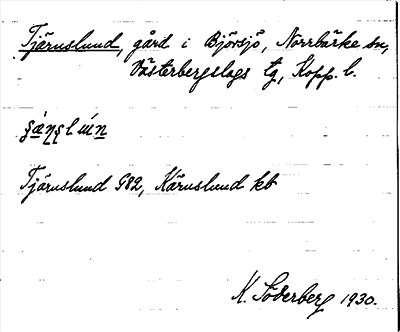 Tjäruslund, gård i Björsjö, Norrbärke sn,
Västerbergslags tg, Kopp. l.
Tjäruslund G82, Käruslund kb
K. Söderberg 1930.